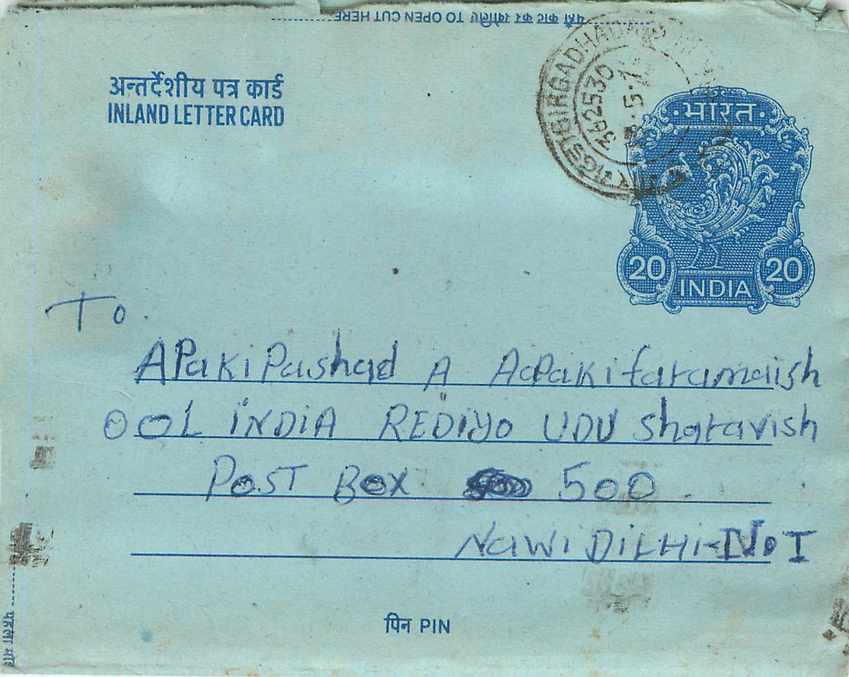 यहाँ काट कर खोलिए TO OPEN CUT HERE
अन्तर्देशीय पत्र कार्ड
INLAND LETTER CARD
362530
भारत
20 20
INDIA
To.
APaki Pashad A AaPaki faramaish
OOL INDIA REDIYO UDU Sharavish
POST BOX 500
NAWI DILHI-No I
पिन PIN